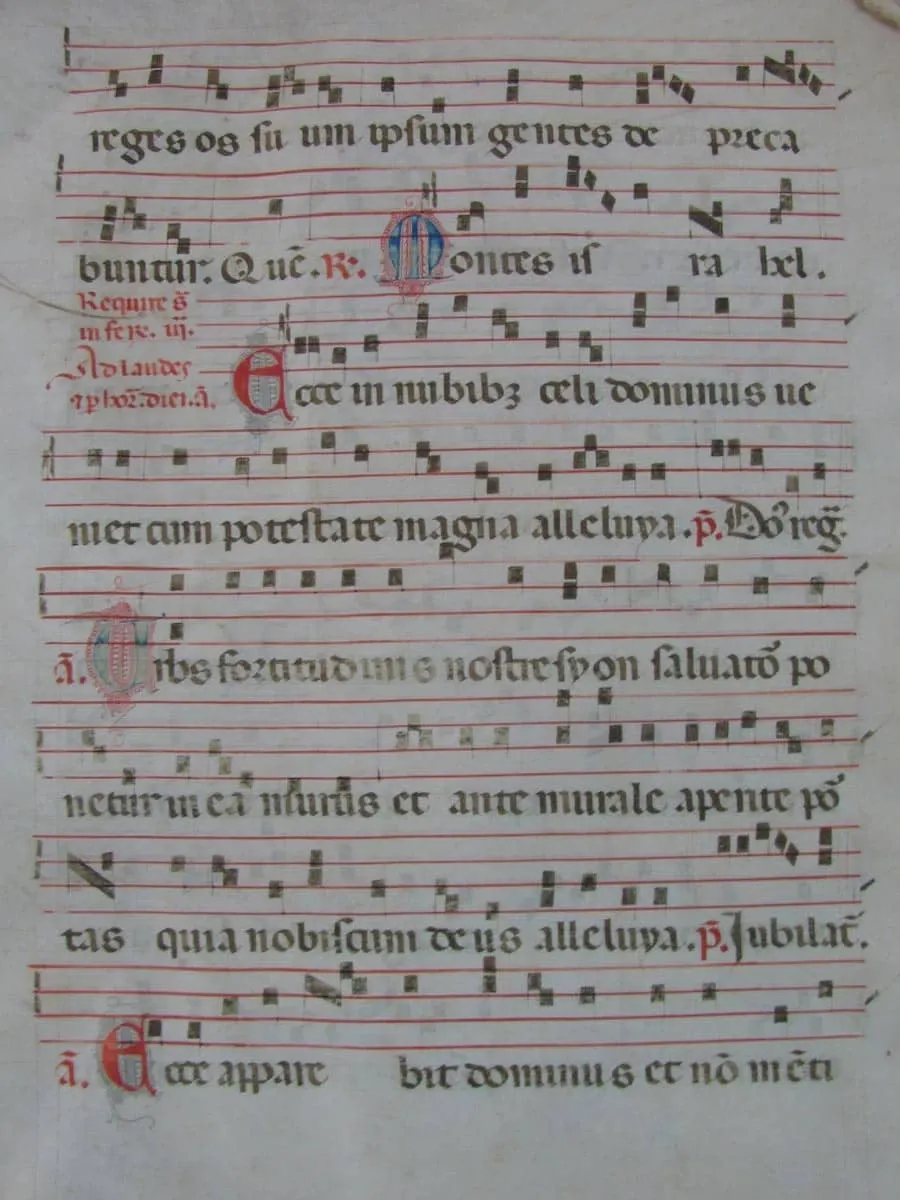 reges os su um ipsum gentes de preca
buntur. Quē. R. Montes is ra hel.
Require ʒ̃
in fe re. iij.
Ad laudes
⁊ p hoř. diei. ā.
Ecce in nubibꝫ celi dominus ue
niet cum potestate magna alleluya. p̄. Dn̄s reg̃.
ā. Urbs fortitudinis nostre syon saluatō po
netur in ea murus et ante murale aperite po᷑
tas quia nobiscum deus alleluya. p̄. Jubilat̄.
ā. Ecce appare bit dominus et nō mēti